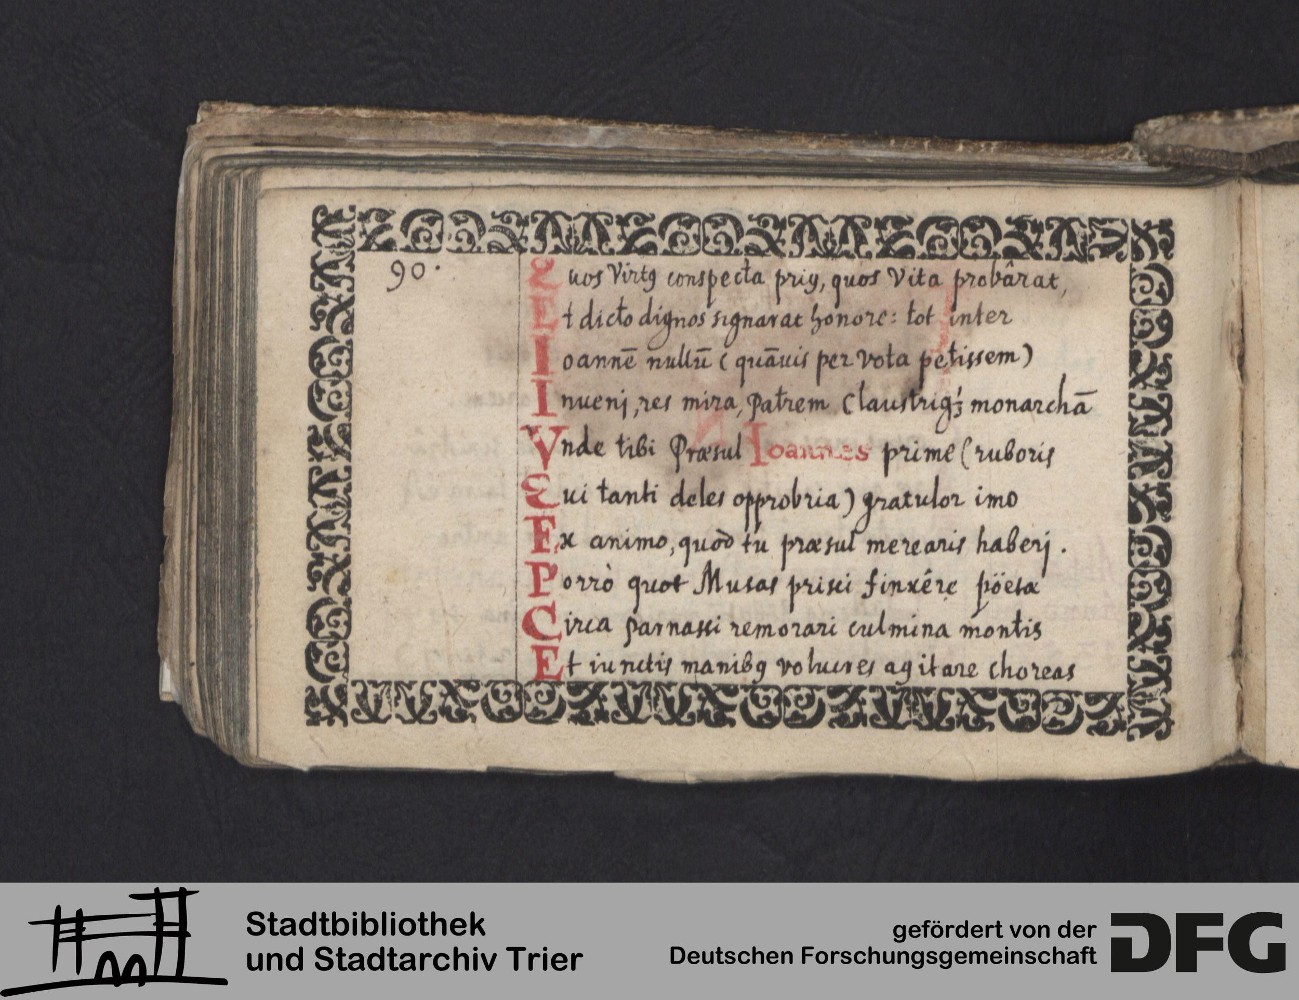 90.
Quos Virtꝰ conspecta priꝰ, quos Vita probârat,
Et dicto dignos signarat honore: tot inter
Ioannē nullū (quāuis per vota petissem)
Inuenj, res mira, Patrem Claustrigꝫ monarchā
Vnde tibi Præsul Ioannes prime (ruboris
Qui tanti deles opprobria) gratulor imo
Ex animo, quod tu præsul merearis haberj.
Porrò quot Musas prisci finxêre pöetæ
Circa parnassi remorari culmina montis
Et iunctis manibꝰ volucres agitare choreas
Stadtbibliothek
und Stadtarchiv Trier
gefördert von der
Deutschen Forschungsgemeinschaft
DFG